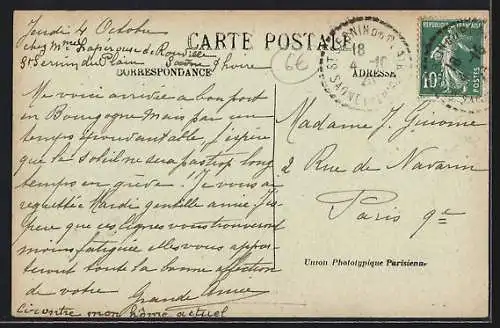 Jeudi 4 Octobre
chez Mme Laperouse de Rouville
St Sernin du Plain Saône & Loire
CARTE POSTALE
CORRESPONDANCE
ADRESSE
6€
18
4 -10
10c
Me voici arrivée à bon port
en Bourgogne mais par un
temps épouvantable j'espère
que le soleil ne sera pas trop long
temps en grève. Je vous ai
regrettée Mardi gentille amie j'es-
père que ces lignes vous trouveront
moins fatiguée elles vous appor-
teront toute la bonne affection
de votre Grande Amie
Ci contre mon home actuel
Madame J.
2 Rue de Navarin
Paris 9e
Union Phototypique Parisienne